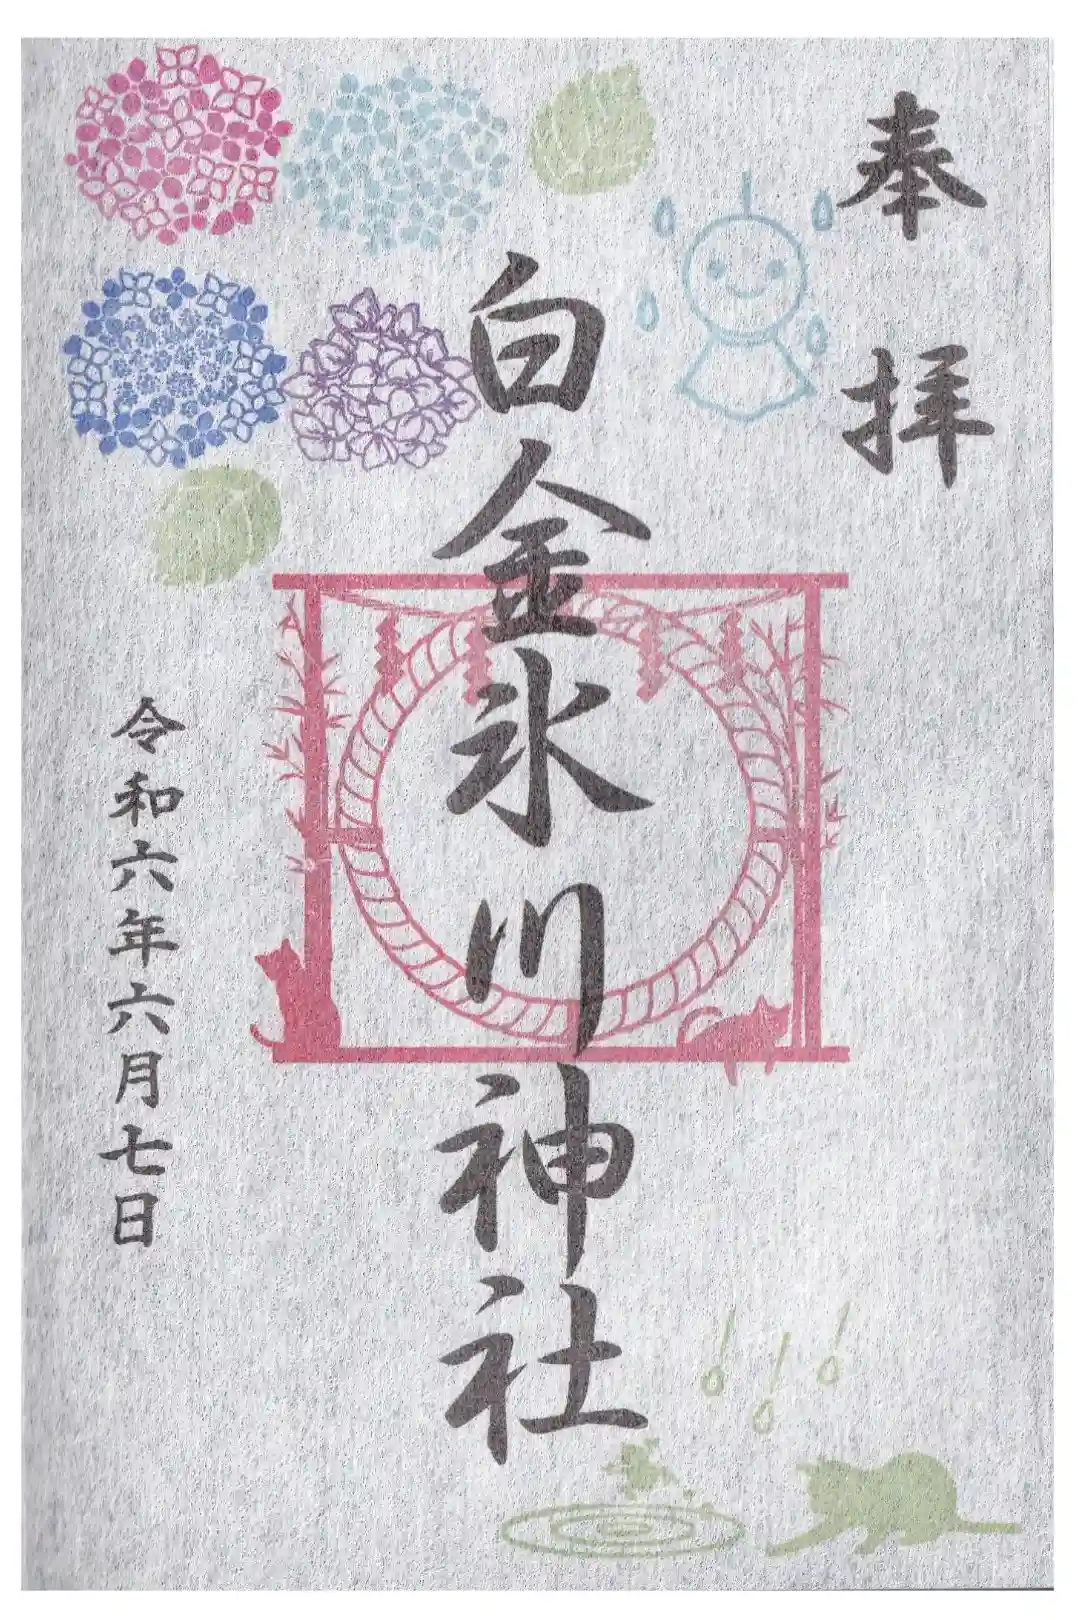 奉拝
白金氷川神社
令和六年六月七日